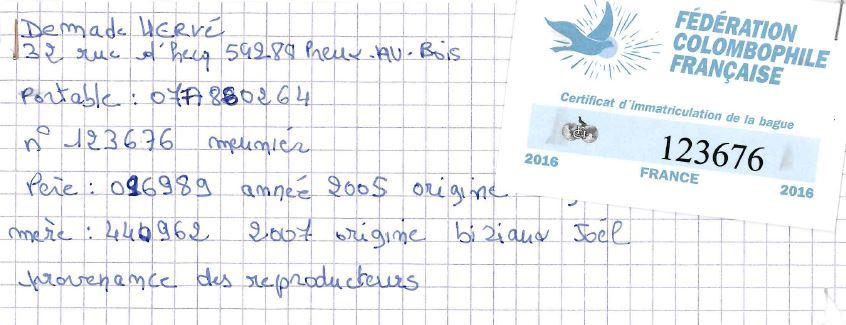 Demade HERVÉ
32 rue d'hecq 59288 Preux.AU.Bois
Portable :
n° 123676 meunier
Pere : 026989 année 2005 origine
mere : 440962 2007 origine biziaux Joël
provenance des reproducteurs
FÉDÉRATION
COLOMBOPHILE
FRANÇAISE
Certificat d'immatriculation de la bague
123676
2016
FRANCE
2016